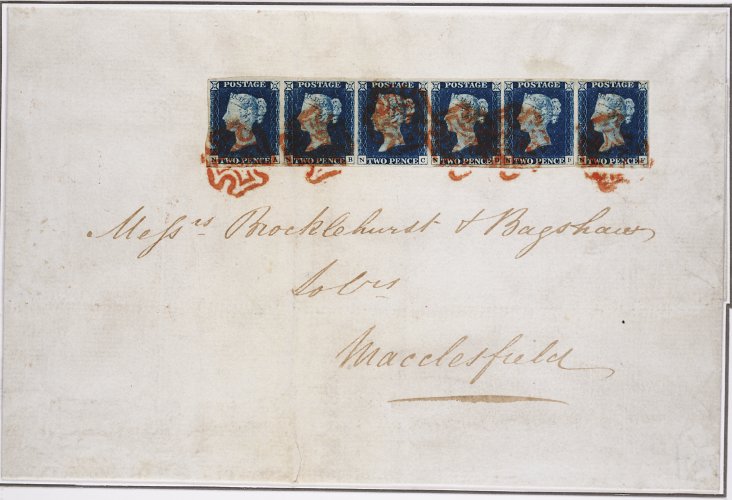 POSTAGE POSTAGE POSTAGE POSTAGE POSTAGE POSTAGE
N TWO PENCE A N TWO PENCE B N TWO PENCE C N TWO PENCE D N TWO PENCE E N TWO PENCE F
Messrs Brocklehurst & Bagshaw
Solrs
Macclesfield